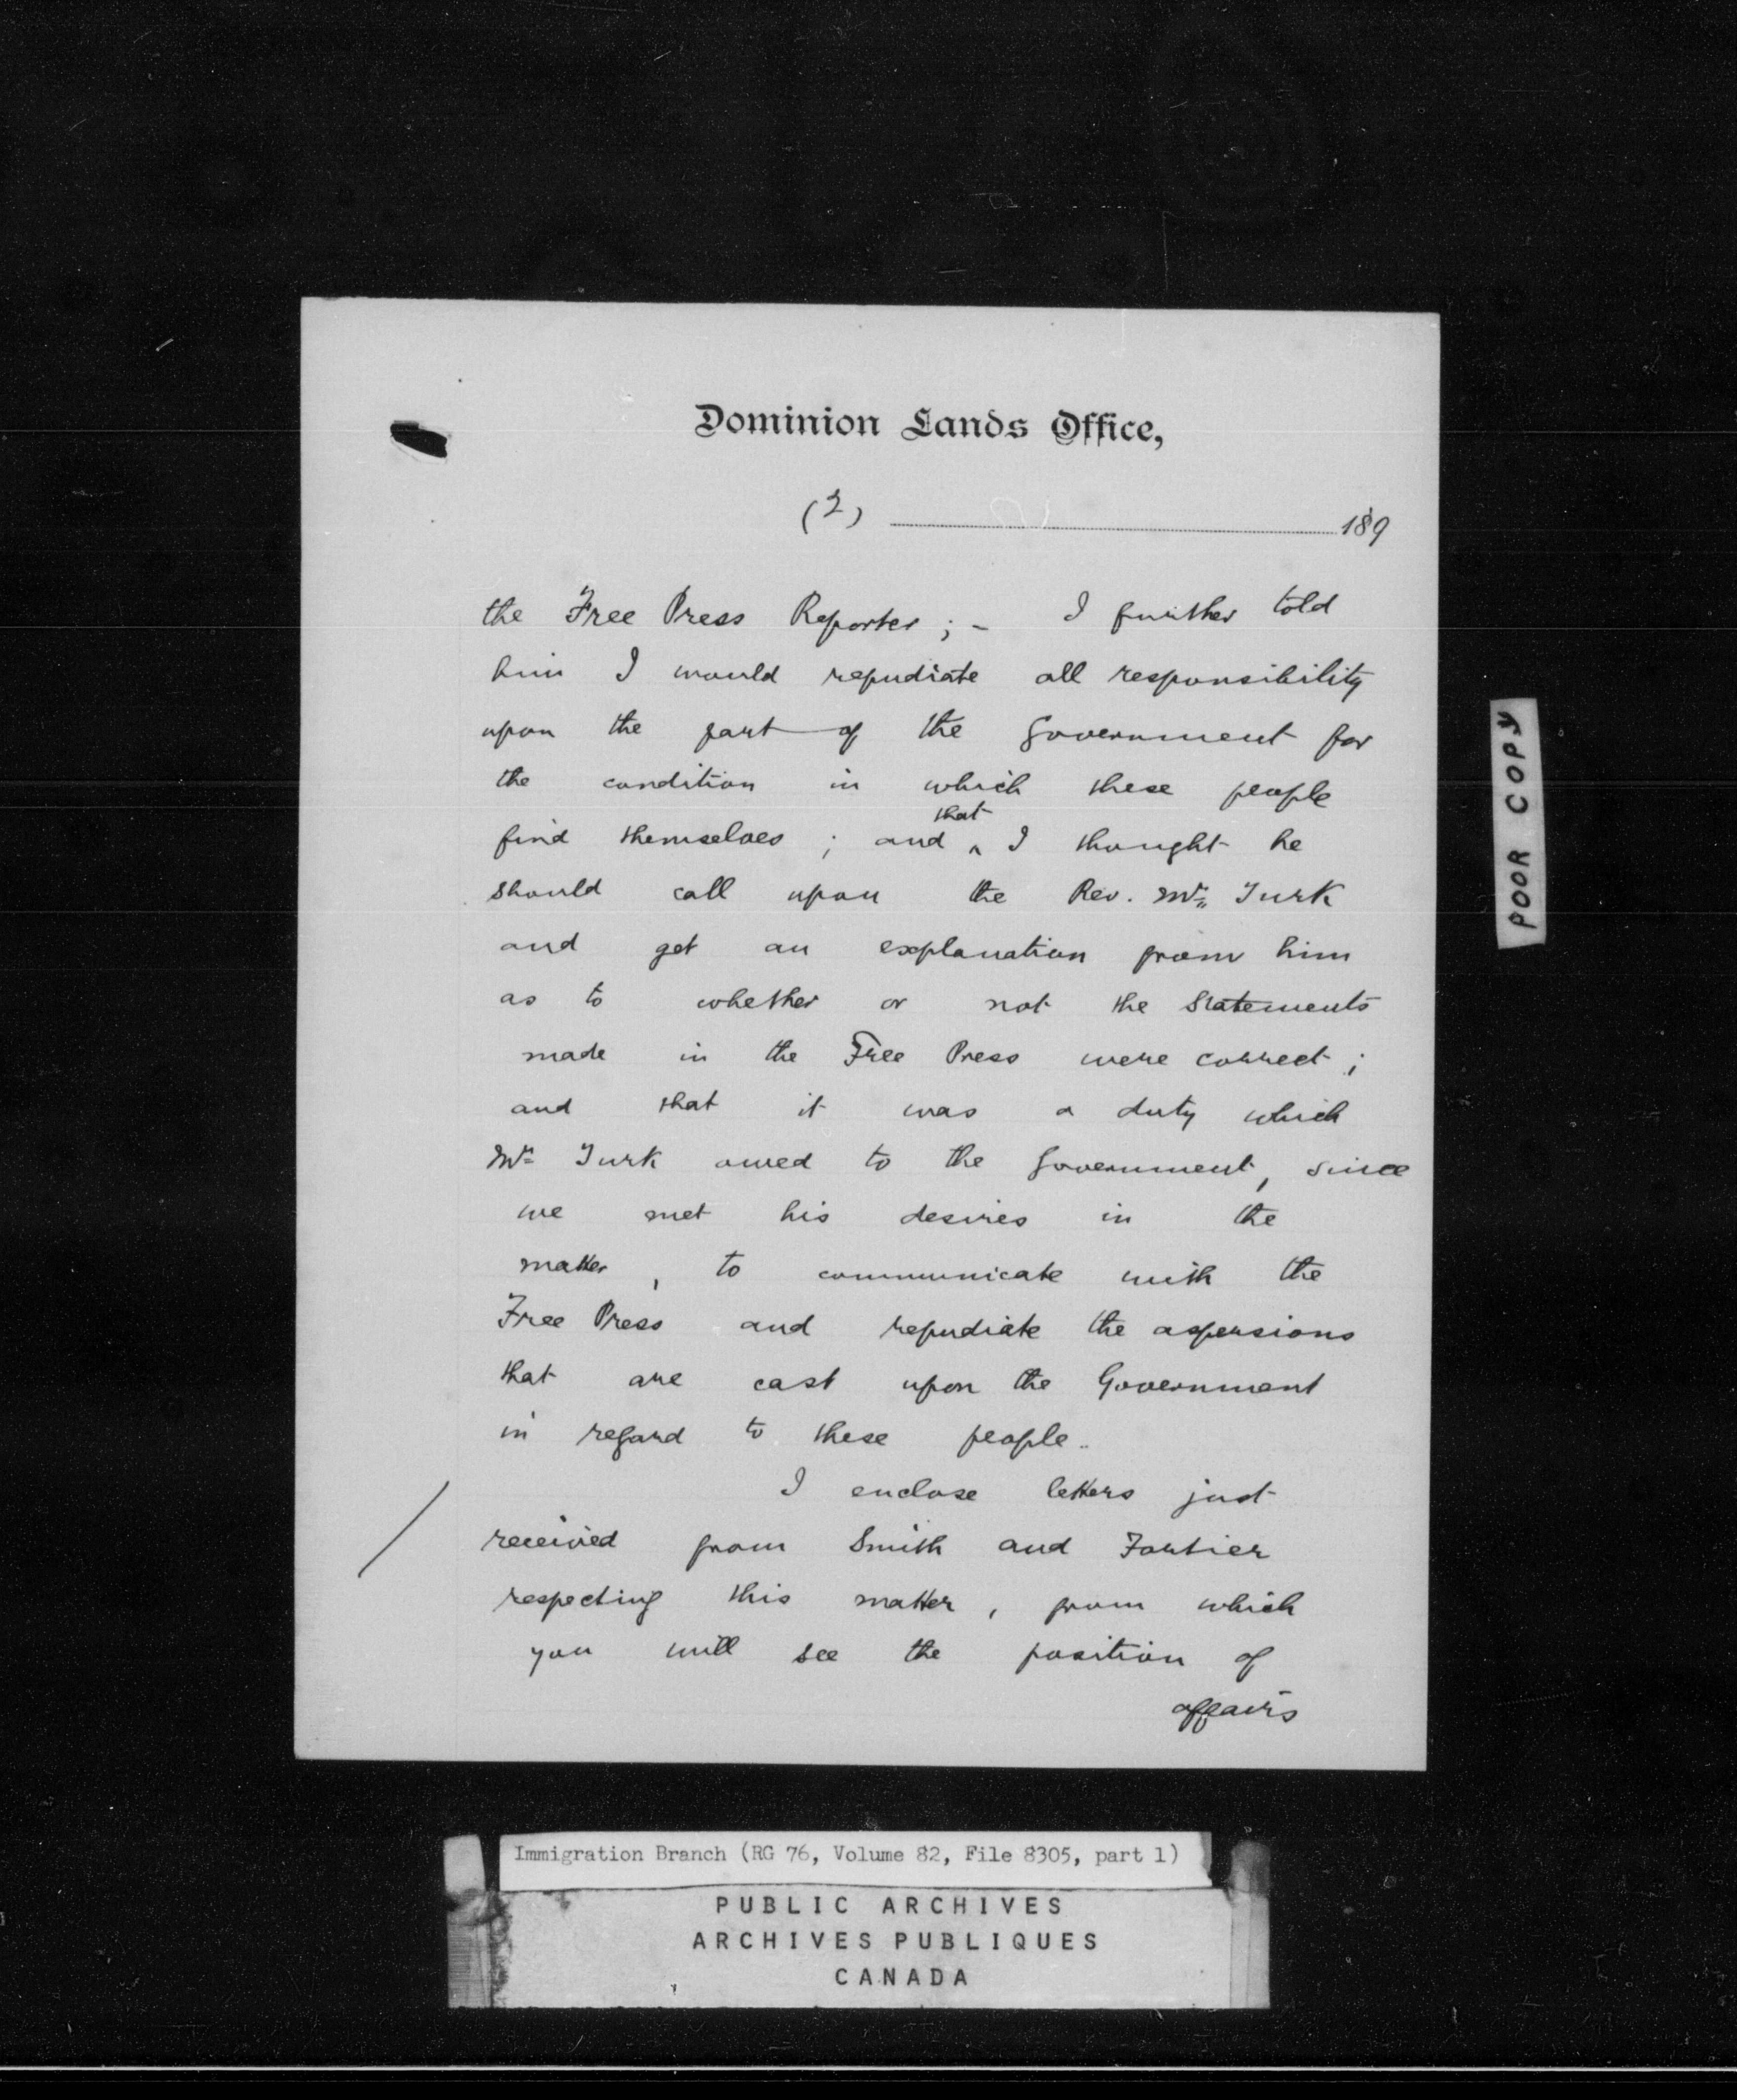 Dominion Lands Office,
(2) 189
the Free Press Reporter ; - I further told
him I would repudiate all responsibility
upon the part of the Government for
the condition in which these people
that
find themselves ; and ^ I thought he
should call upon the Rev. Mr. Turk
and get an explanation from him
as to whether or not the statements
made in the Free Press were correct ;
and that it was a duty which
Mr Turk owed to the Government, since
we met his desires in the
matter, to communicate with the
Free Press and repudiate the aspersions
that are cast upon the Government
in regard to these people.
I enclose letters just
received from Smith and Fortier
respecting this matter, from which
you will see the position of
affairs
POOR COPY
Immigration Branch (RG 76, Volume 82, File 8305, part 1)
PUBLIC ARCHIVES
ARCHIVES PUBLIQUES
CANADA